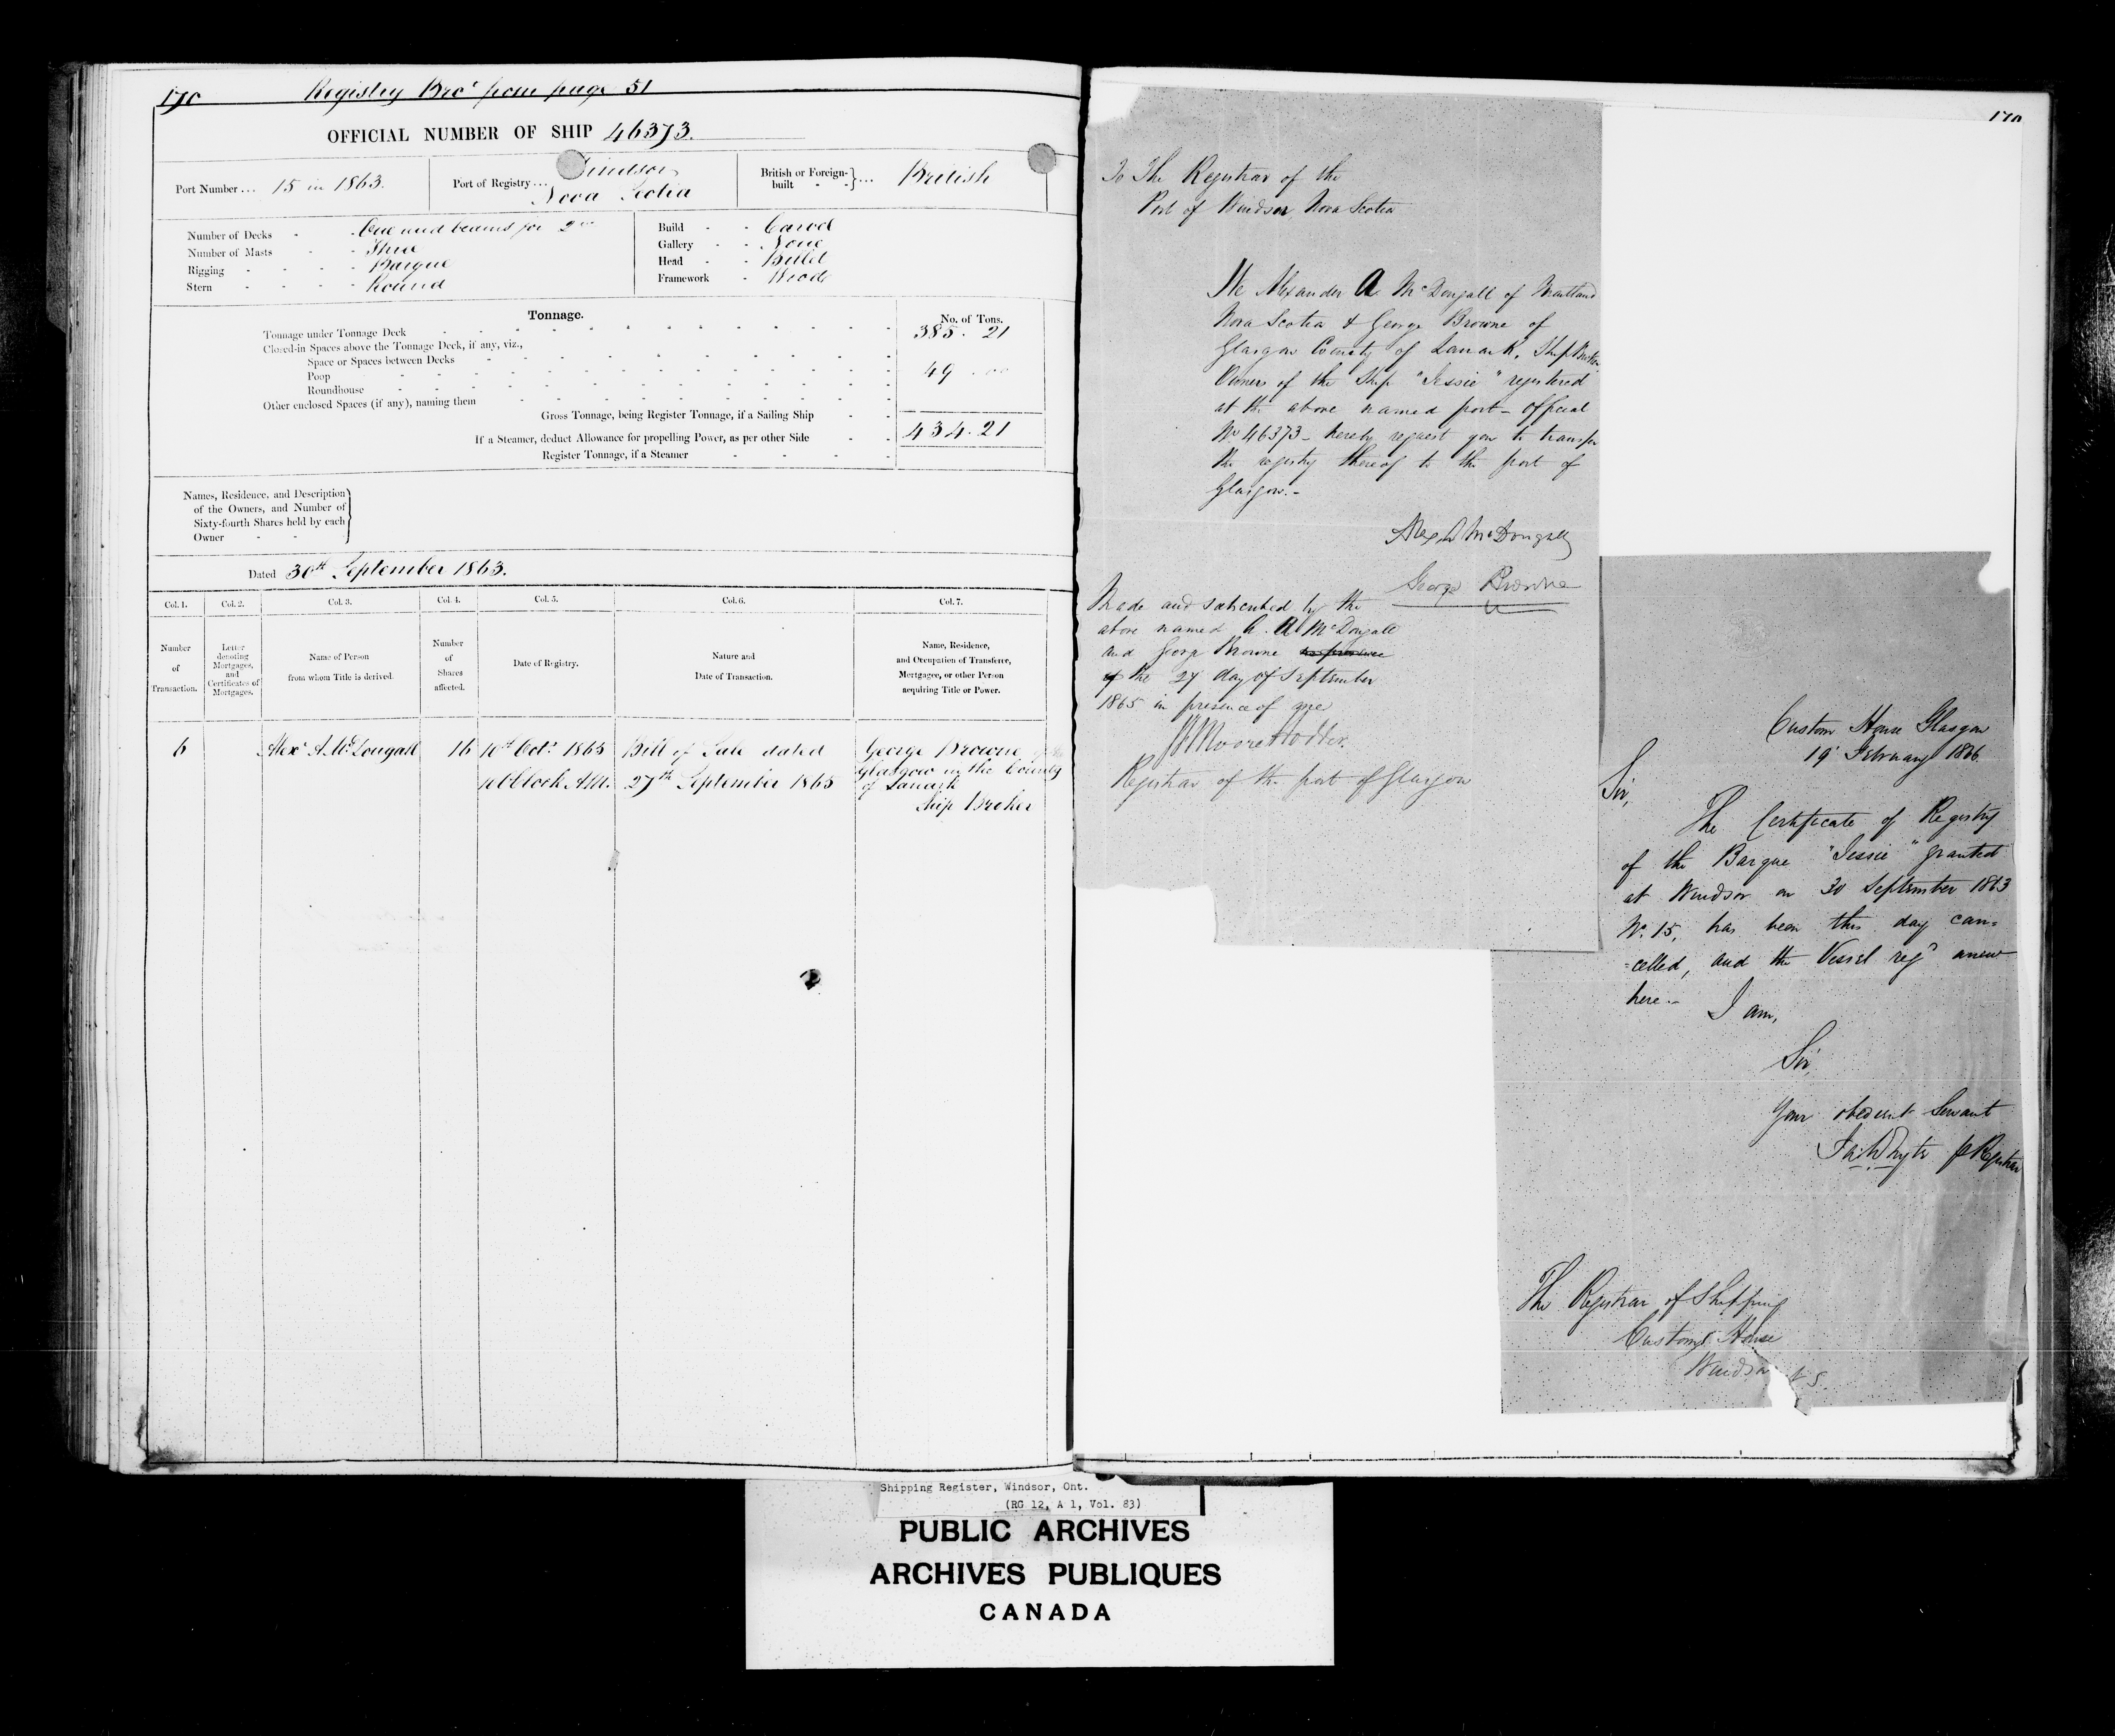 170 Registry Bro^t from page 51
OFFICIAL NUMBER OF SHIP 46373.
Port Number... 15 in 1863.
Port of Registry... Windsor,
Nova Scotia
British or Foreign-
built - -}... British
Number of Decks - One and beams for 2nd
Number of Masts - Three
Rigging - - - - Barque
Stern - - - - Round
Build - - Carvel
Gallery - - None
Head - - Billet
Framework - Wood
Tonnage.
No. of Tons.
Tonnage under Tonnage Deck 385. 21
Closed-in Spaces above the Tonnage Deck, if any, viz.,
Space or Spaces between Decks
Poop 49. 00
Roundhouse
Other enclosed Spaces (if any), naming them
Gross Tonnage, being Register Tonnage, if a Sailing Ship 434. 21
If a Steamer, deduct Allowance for propelling Power, as per other Side
Register Tonnage, if a Steamer
Names, Residence, and Description
of the Owners, and Number of
Sixty-fourth Shares held by each
Owner - -
Dated 30th September 1863.
Col. 1. Col. 2. Col. 3. Col. 4. Col. 5. Col. 6. Col. 7.
Number
of
Transaction.
Letter
denoting
Mortgages,
and
Certificates of
Mortgages.
Name of Person
from whom Title is derived.
Number
of
Shares
affected.
Date of Registry.
Nature and
Date of Transaction.
Name, Residence,
and Occupation of Transferee,
Mortgagee, or other Person
acquiring Title or Power.
6 Alexr A. McDougall 16 10th Octr 1865 Bill of Sale dated George Browne of
o'Clock A.M. 27th September 1865 Glasgow in the County
of Lanark
Ship Broker
170
To The Registrar of the
Port of Windsor, Nova Scotia
We Alexander A McDougall of Maitland
Nova Scotia & George Browne of
Glasgow County of Lanark, Ship Broker
Owners of the Ship "Jessie" registered
at the above named port - official
No 46373 - hereby request you to transfer
the registry thereof to the port of
Glasgow.-
Alex A McDougall
George Browne
Made and subscribed by the
above named A. A McDougall
and George Browne in presence
of the 27 day of September
1865 in presence of me
Moore
Registrar of the port of Glasgow
Custom House Glasgow
19 February 1866.
Sir,
The Certificate of Registry
of the Barque "Jessie" granted
at Windsor on 30 September 1863
No. 15, has been this day can=
=celled, and the Vessel regd anew
here.-
I am,
Sir,
Your obedient Servant
Whyte p Registrar
The Registrar of Shipping
Customs House
Windsor N S.
Shipping Register, Windsor, Ont.
(RG 12, A 1, Vol. 83)
PUBLIC ARCHIVES
ARCHIVES PUBLIQUES
CANADA